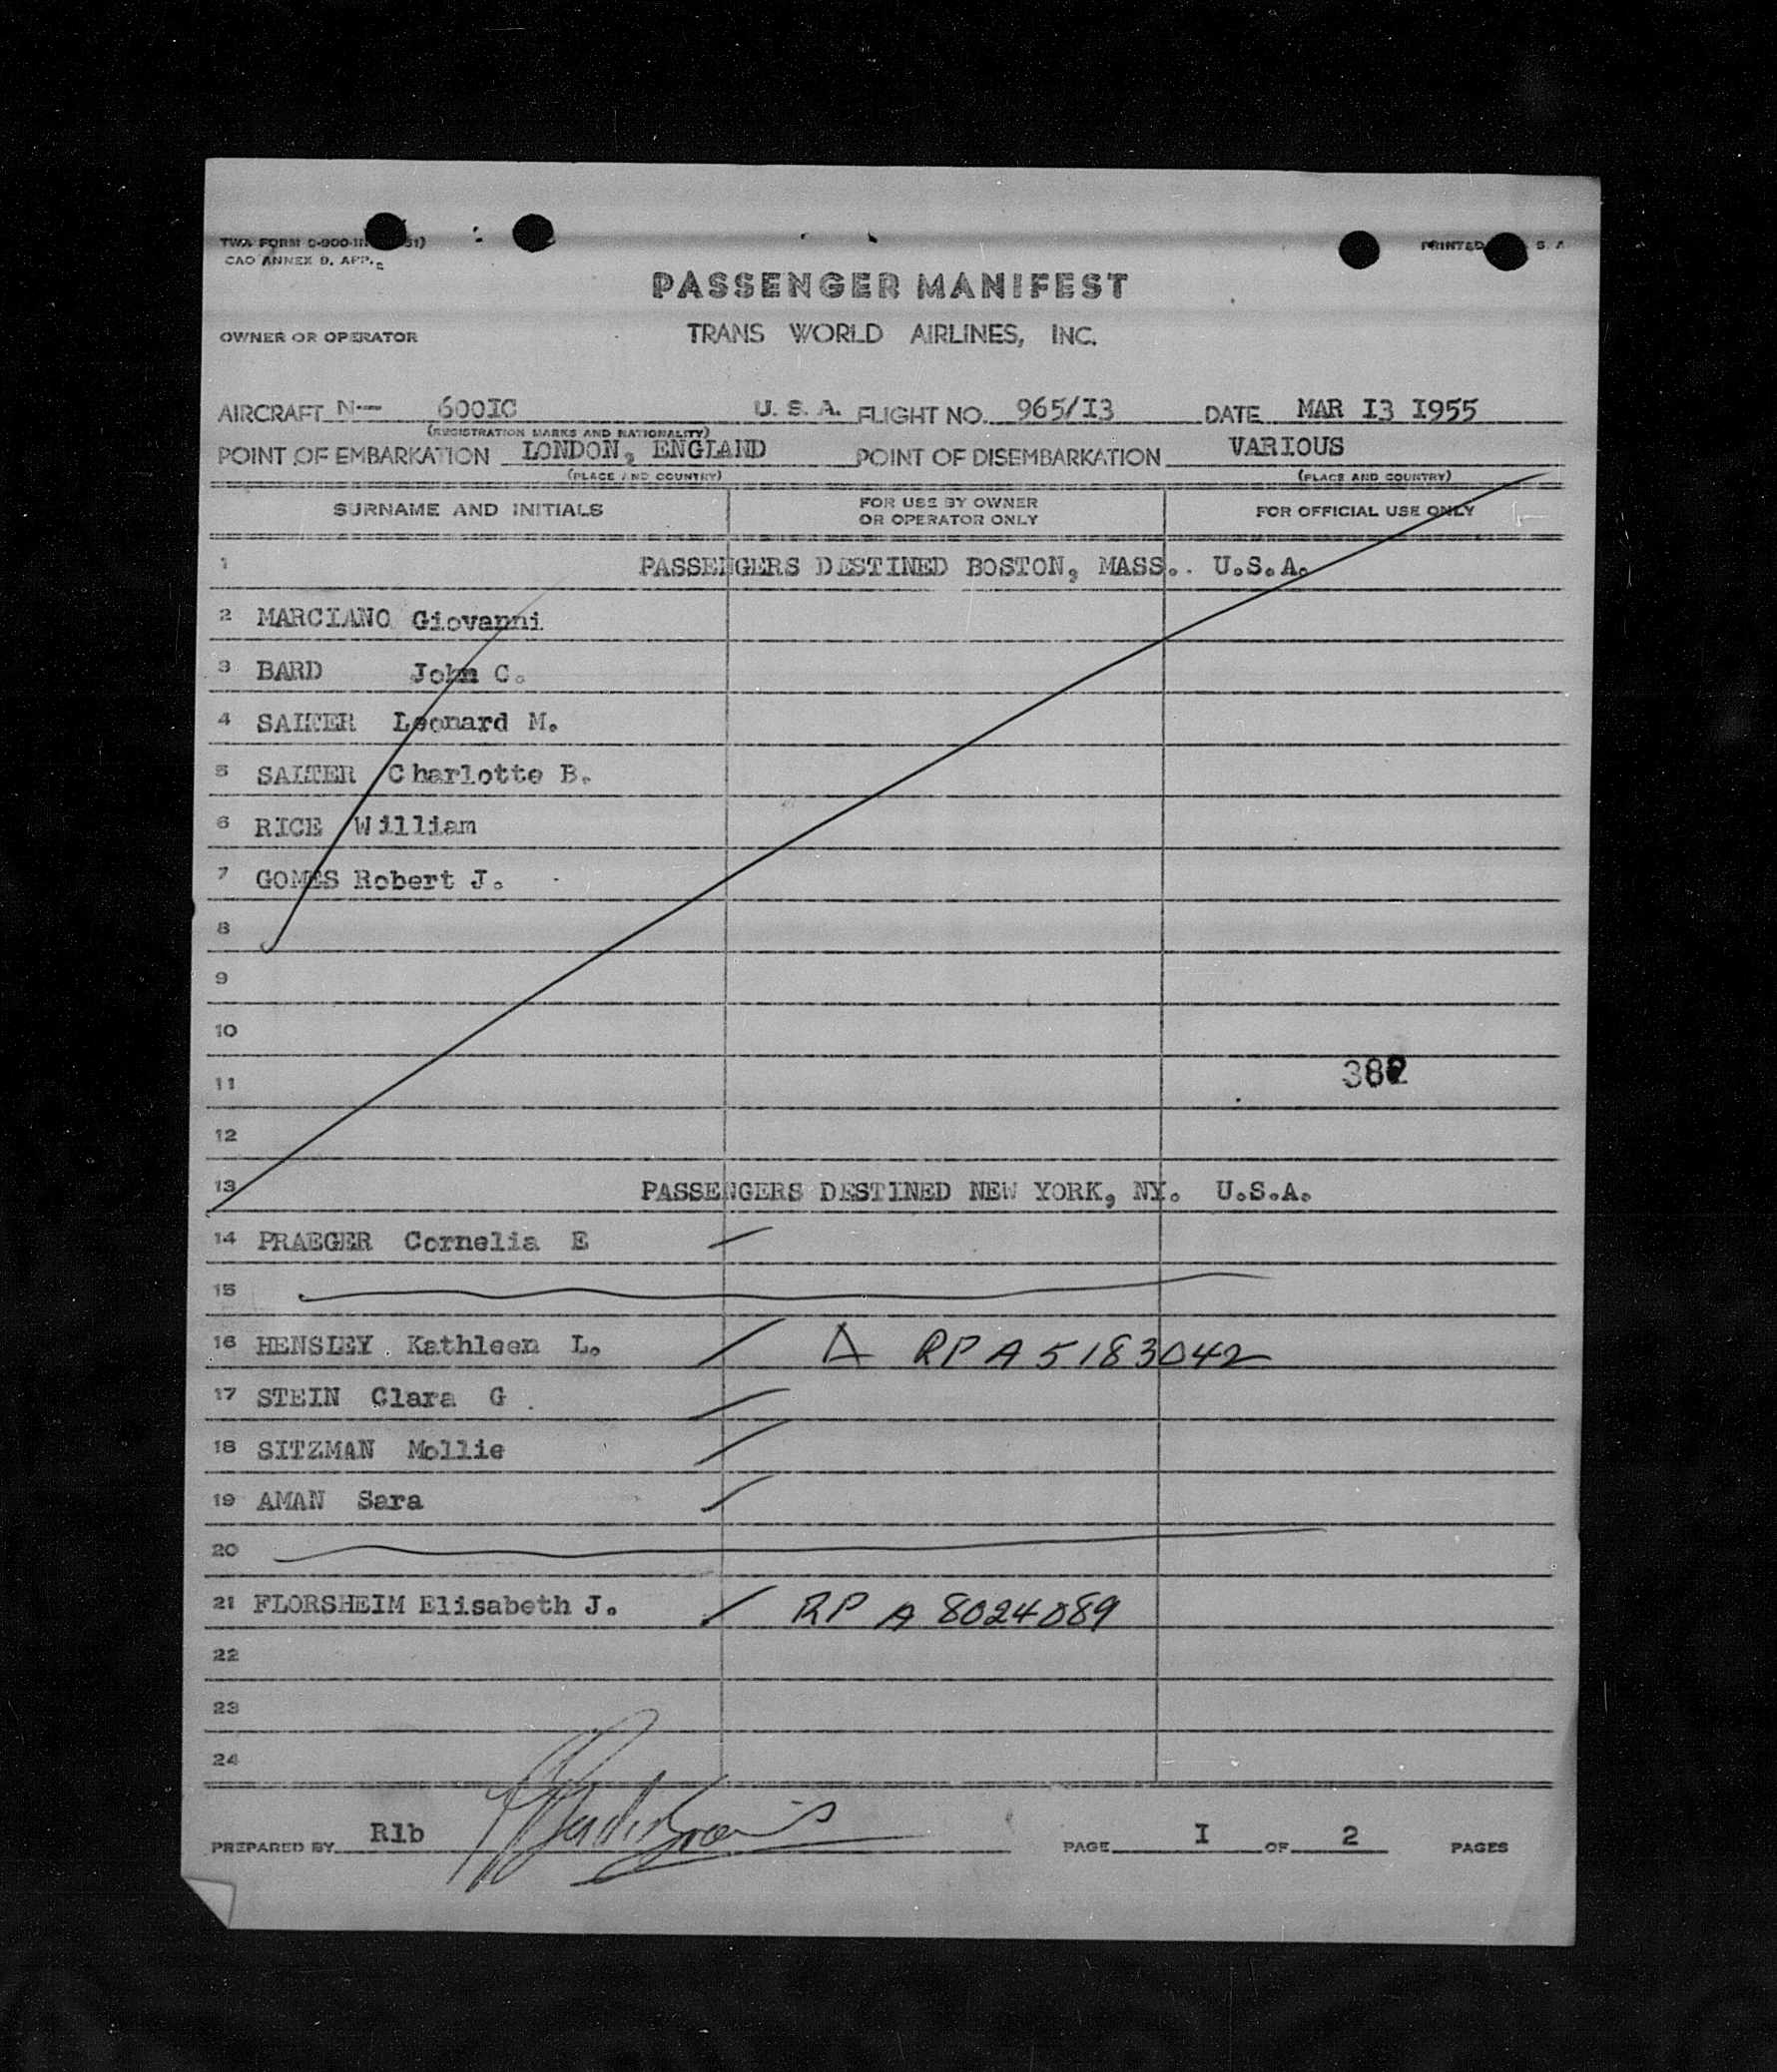 TWA FORM
CAO ANNEX 9, APP.
PRINTED S. A
PASSENGER MANIFEST
OWNER OR OPERATOR TRANS WORLD AIRLINES, INC.
AIRCRAFT N-- 600IC U. S. A. FLIGHT NO. 965/I3 DATE MAR I3 I955
(REGISTRATION MARKS AND NATIONALITY)
POINT OF EMBARKATION LONDON, ENGLAND POINT OF DISEMBARKATION VARIOUS
(PLACE AND COUNTRY) (PLACE AND COUNTRY)
SURNAME AND INITIALS FOR USE BY OWNER OR OPERATOR ONLY FOR OFFICIAL USE ONLY
1 PASSENGERS DESTINED BOSTON, MASS. U.S.A.
2 MARCIANO Giovanni
3 BARD John C.
4 SALTER Leonard M.
5 SALTER Charlotte B.
6 RICE William
7 GOMES Robert J.
8
9
10
11 382
12
13 PASSENGERS DESTINED NEW YORK, NY. U.S.A.
14 PRAEGER Cornelia E
15
16 HENSLEY Kathleen L. RP A 5183042
17 STEIN Clara G
18 SITZMAN Mollie
19 AMAN Sara
20
21 FLORSHEIM Elisabeth J. RP A 8024089
22
23
24
PREPARED BY Rlb PAGE I OF 2 PAGES